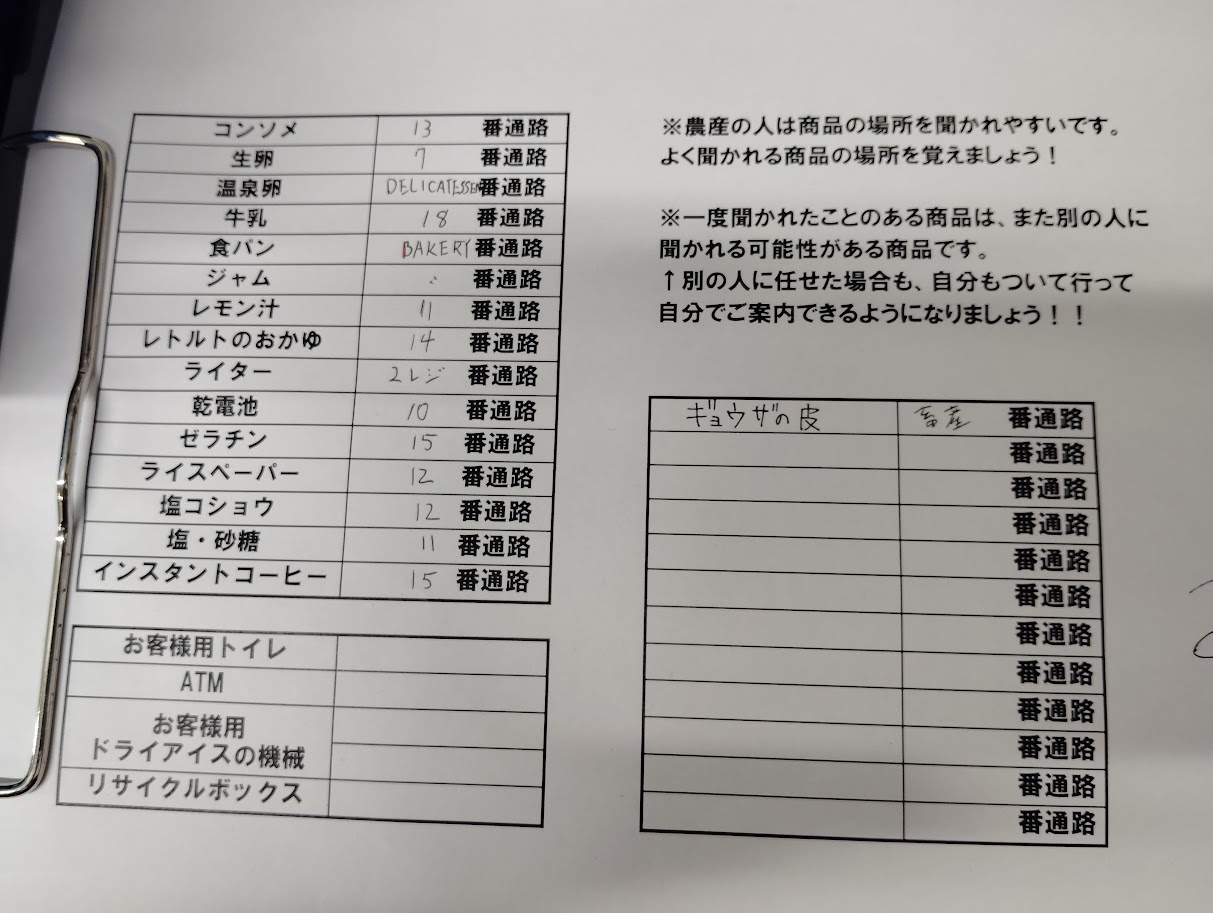 コンソメ 13 番通路
生卵 7 番通路
温泉卵 DELICATESSEN番通路
牛乳 18 番通路
食パン BAKERY 番通路
ジャム 番通路
レモン汁 11 番通路
レトルトのおかゆ 14 番通路
ライター 2レジ 番通路
乾電池 10 番通路
ゼラチン 15 番通路
ライスペーパー 12 番通路
塩コショウ 12 番通路
塩・砂糖 11 番通路
インスタントコーヒー 15 番通路
お客様用トイレ
ATM
お客様用
ドライアイスの機械
リサイクルボックス
※農産の人は商品の場所を聞かれやすいです。
よく聞かれる商品の場所を覚えましょう！
※一度聞かれたことのある商品は、また別の人に
聞かれる可能性がある商品です。
↑別の人に任せた場合も、自分もついて行って
自分でご案内できるようになりましょう！！
ギョウザの皮 畜産 番通路
番通路
番通路
番通路
番通路
番通路
番通路
番通路
番通路
番通路
番通路
番通路